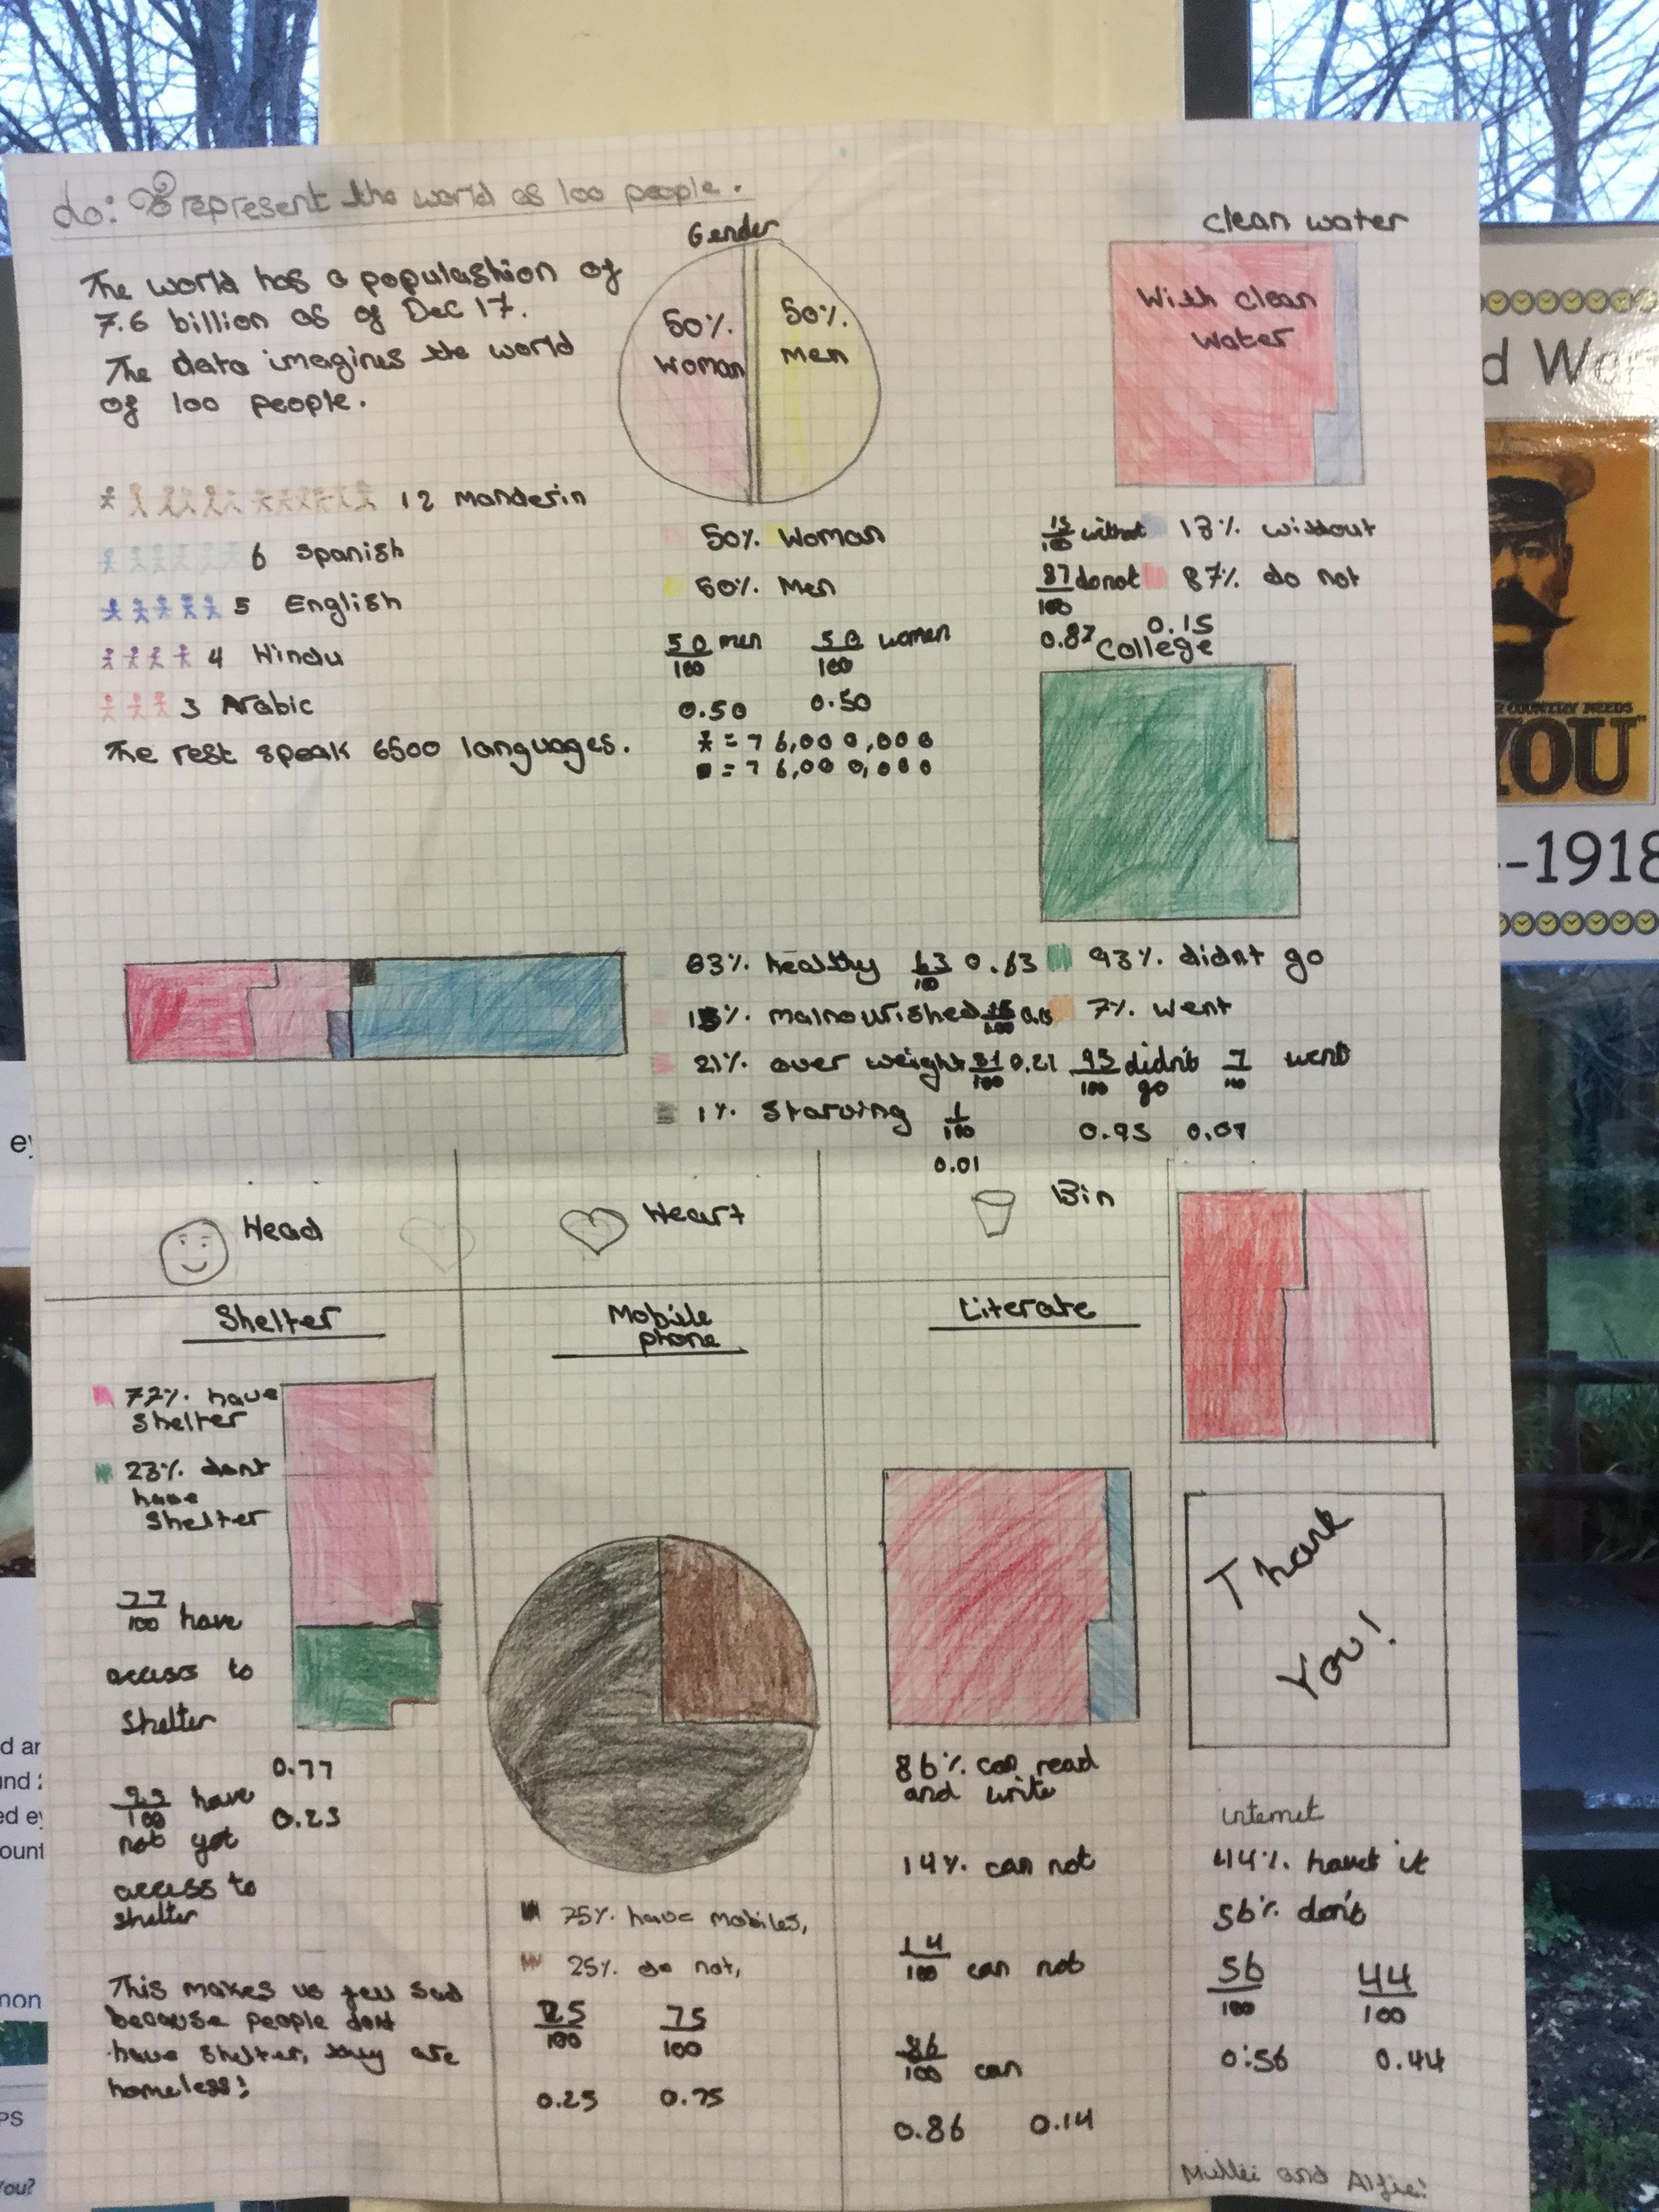 do: represent the world as 100 people.
The world has a populashion of
7.6 billion as of Dec 17.
The data imagines the world
of 100 people.
12 Manderin
6 Spanish
5 English
4 Hindu
3 Arabic
The rest speak 6500 languages.
Gender
50% Woman
50% Men
50% Woman
50% Men
50/100 men 50/100 women
0.50 0.50
= 76,000,000
= 76,000,000
Clean water
With clean
Water
15/100 without 13% without
87/100 do not 87% do not
0.87 0.15
College
63% healthy 63/100 0.63
malnourished
21% over weight 21/100 0.21
1% Starving 1/100
0.01
93% didnt go
7% went
93/100 didn't go 7/100 went
0.93 0.07
Head
Heart
Bin
Shelter
77% have
Shelter
23% dont
have
Shelter
77/100 have
access to
Shelter
0.77
23/100 have
0.23
not got
access to
shelter
This makes us feel sad
because people dont
have shelter, they are
homeless!
Mobile
phone
75% have mobiles,
25% do not,
25/100 75/100
0.25 0.75
Literate
86% can read
and write
14% can not
14/100 can not
86/100 can
0.86 0.14
Thank
You!
internet
44% it
56% don't
56/100 44/100
0.56 0.44
and Alfie!
d Wo
COUNTRY NEEDS
YOU"
-1918
ey
d ar
und
ed ey
ount
mon
PS
You?